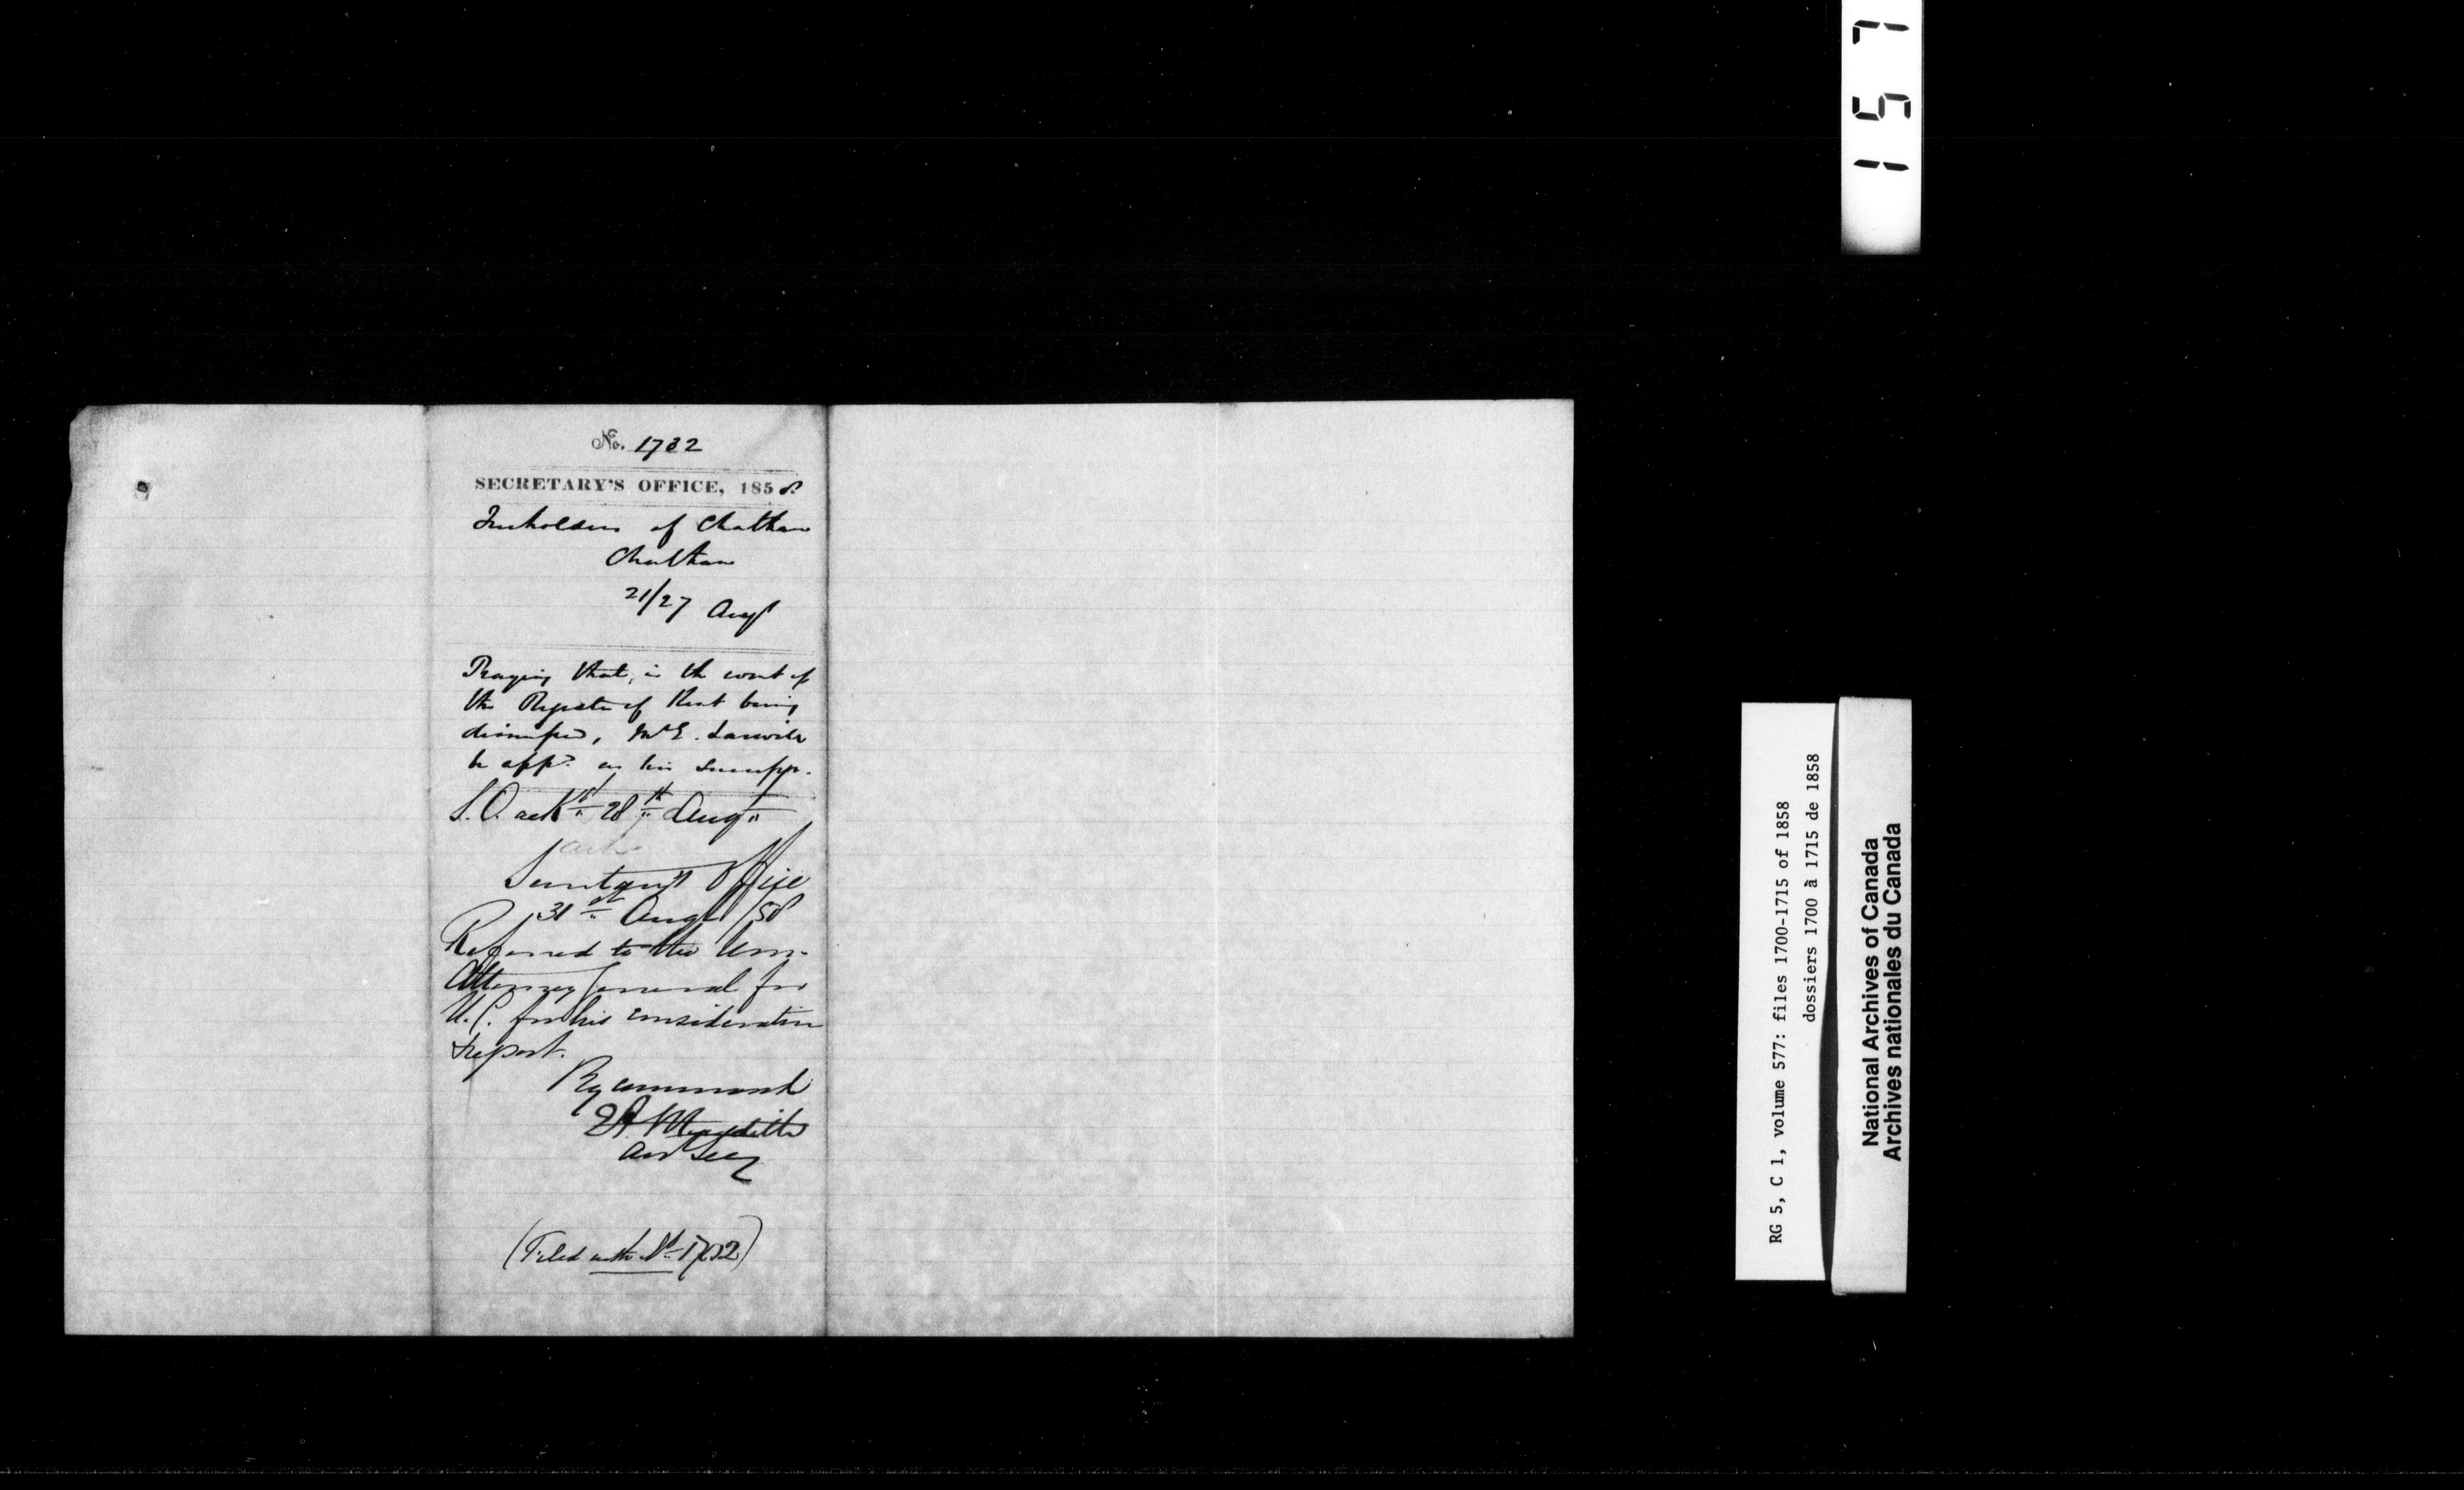 No. 1732
SECRETARY'S OFFICE, 1858.
Freeholders of Chatham
Chatham
21/27 Augt
Praying that, in the event of
the Register of Kent being
dismissed, Mr E. Larwill
be appd as his successr.
S.O. ackd 28th Augt
ack
Secretary's Office
31st Augt /58
Referred to the Hon.
Attorney General for
U.C. for his consideration
& report.
By command
E A Meredith
Asst Secy
(Filed with No 1702)
157
RG 5, C 1, volume 577: files 1700-1715 of 1858
dossiers 1700 à 1715 de 1858
National Archives of Canada
Archives nationales du Canada